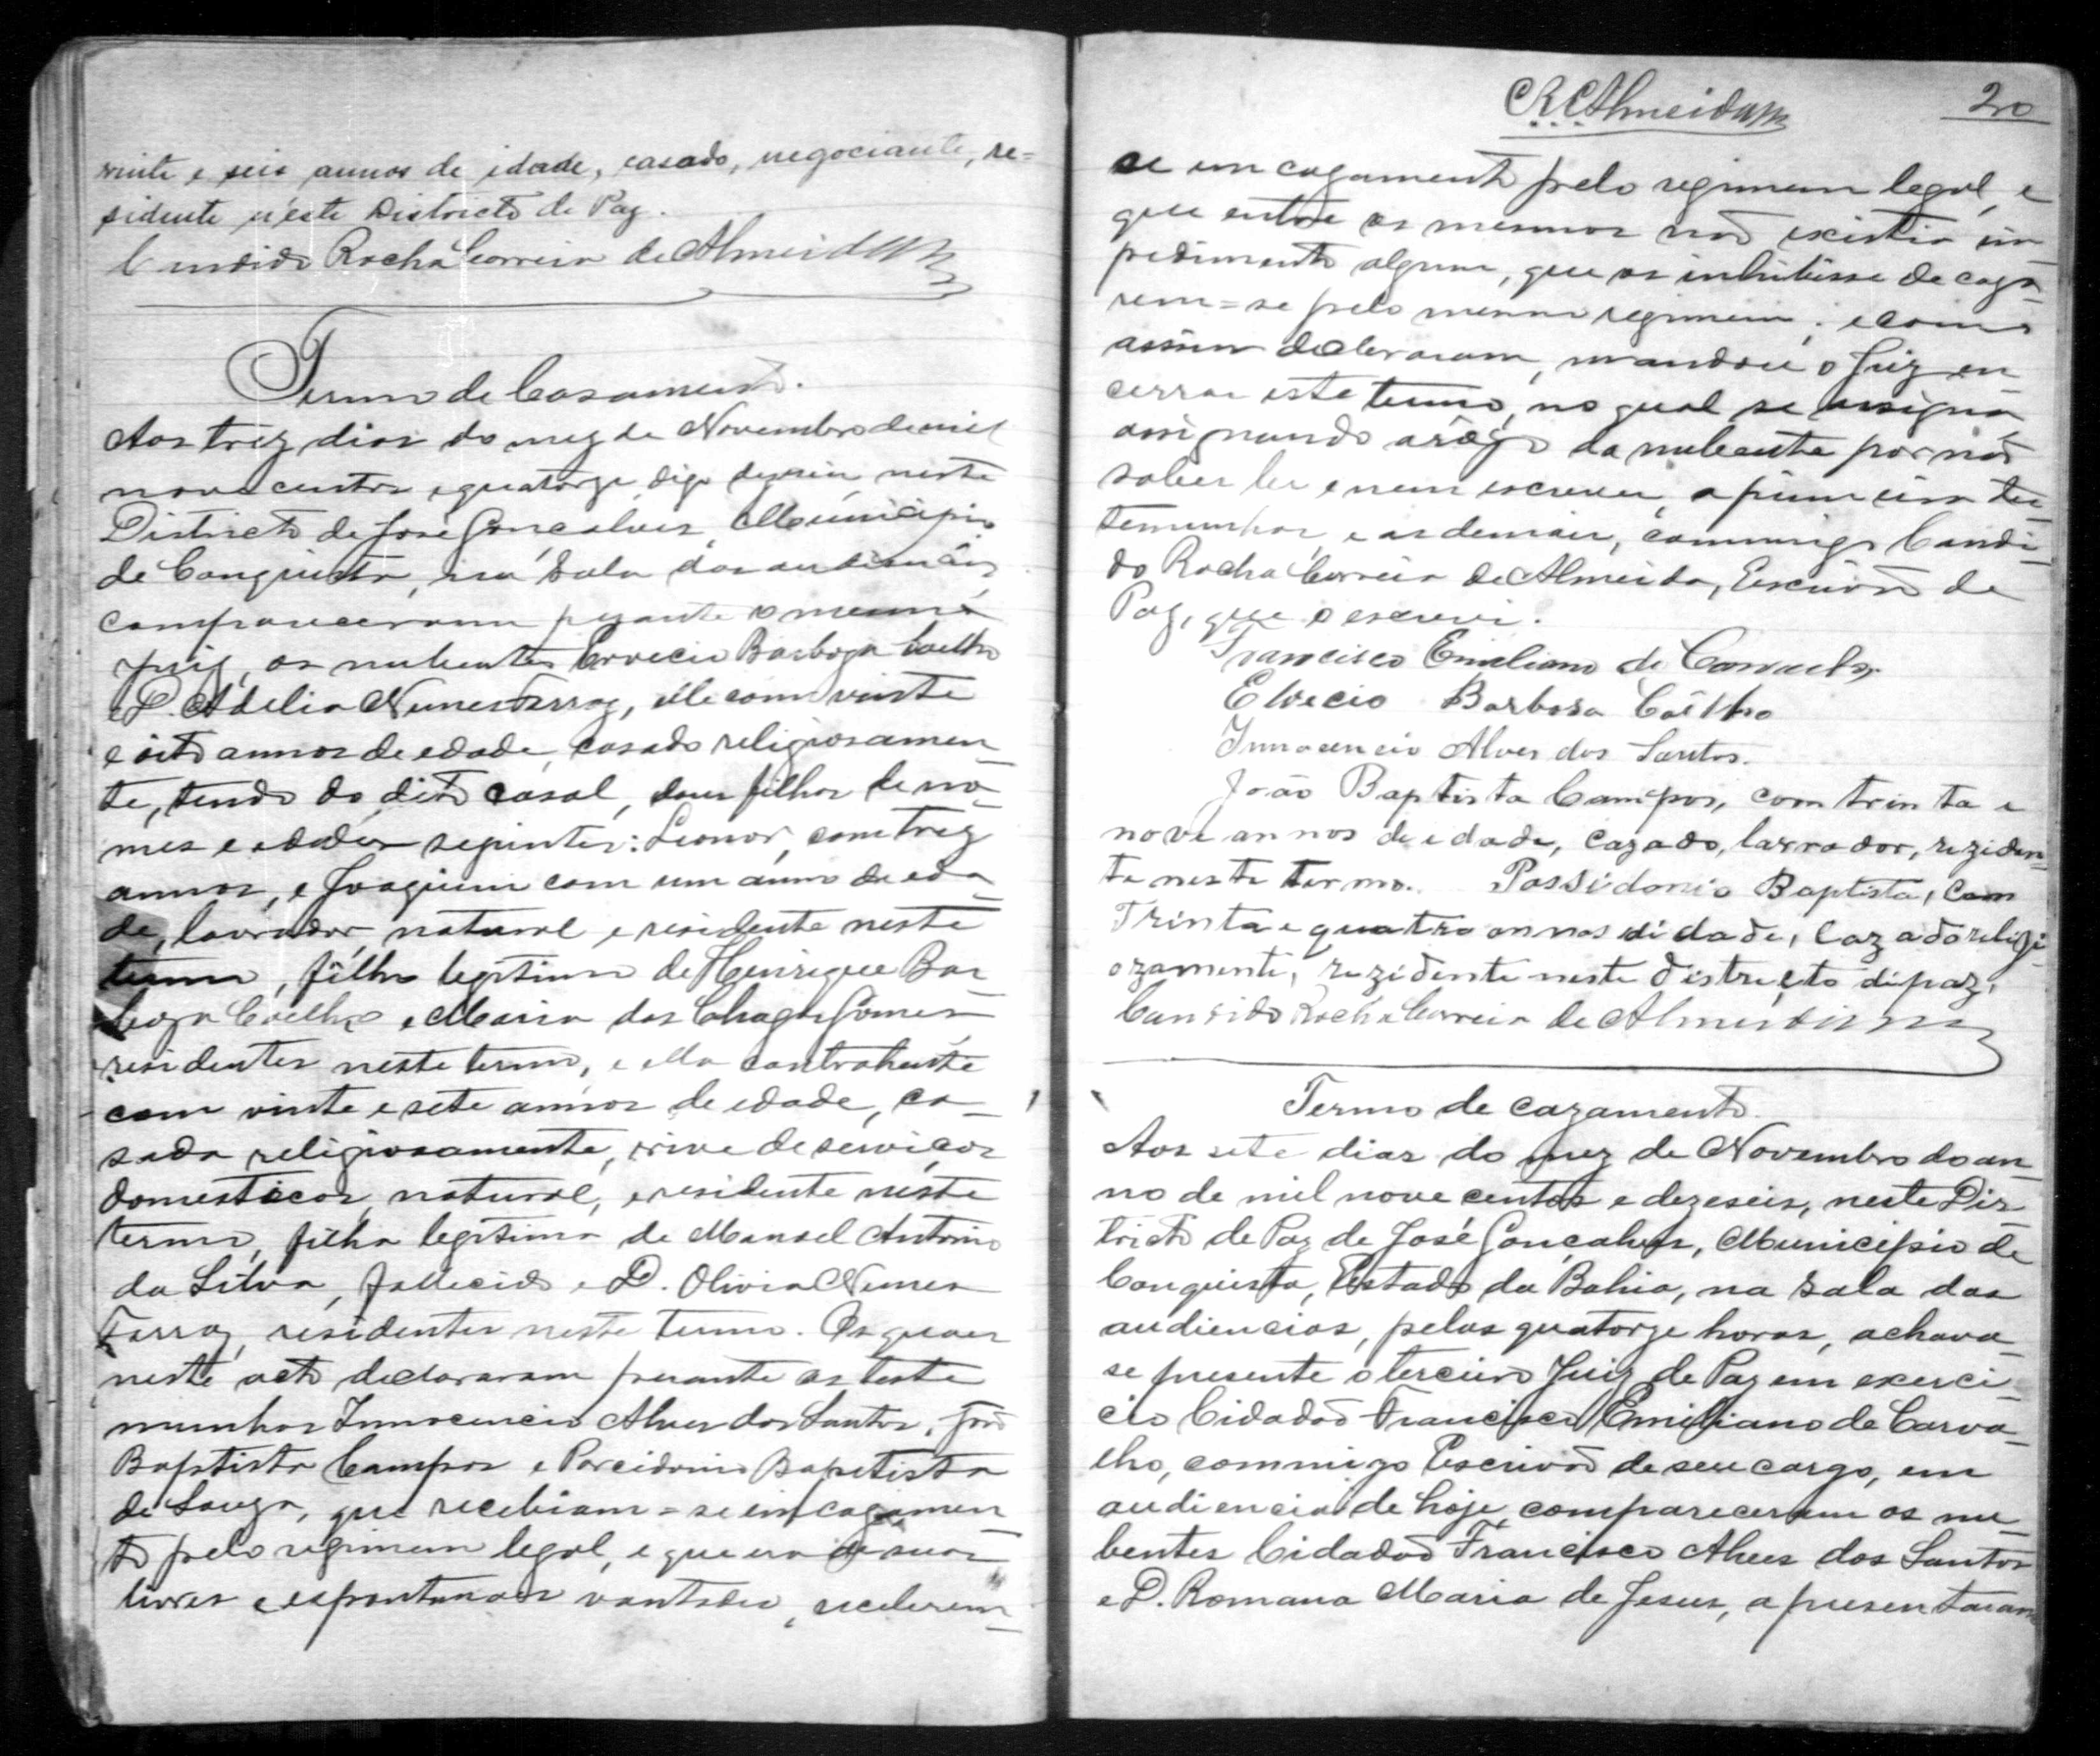 vinte e seis annos de idade, casado, negociante, re=
sidente n'este Districto de Paz.
Candido Rocha Correia de Almeida
Termo de Casamento.
Aos trez dias do mez de Novembro de mil
nove centos e quatorze digo deseseis, neste
Districto de José Gonçalves, Municipio
de Conquista, na Sala das audiencias,
compareceram perante o mesmo
Juiz, os nubentes Elvecio Barboza Coelho
e D. Adelia Nunes Ferraz, elle com vinte
e oito annos de edade, casado religiosamen_
te, tendo do dito casal, dous filhos de no_
mes e edades seguintes: Leonor, com trez
annos, e Joaquim com um anno de eda_
de, lavrador, natural e residente neste
termo, filho legitimo de Henrique Bar_
boza Coelho e Maria das Chagas Gomes
residentes neste termo, e ella contrahente
com vinte e sete annos de edade, ca_
sada religiosamente, vive de serviços
domesticos, natural, e residente neste
termo, filha legitima de Manoel Antonio
da Silva, fallecido e D. Olivia Nunes
Ferraz, residentes neste termo. Os quaes
neste acto declararam perante as teste
munhas Innocencio Alves dos Santos, João
Baptista Campos e Porcidonio Bapetista
de Souza, que recebiam=se em cazamen
to pelo regimem legal, e que era de suas
livres e espontaneas vontades, receberem_
C.R.C.Almeida
20
se em cazamento pelo regimem legal, e
que entre os mesmos não existia im_
pedimento algum, que os inhibisse de caza_
rem=se pelo mesmo regimem; e como
assim declararam, mandou o Juiz en_
cerrar este termo, no qual se assigna,
assignando a rôgo da nubente por não
saber ler e nem escrever, a primeira tes_
temunha, e as demais, commigo Candi_
do Rocha Correia de Almeida, Escrivão de
Paz, que o escrevi.
Francisco Emiliano de Carvalho
Elvecio Barbosa Coêlho
Innocencio Alves dos Santos.
João Baptista Campos, com trinta e
nove annos de edade, cazado, lavrador, reziden_
te neste termo. Possidonio Baptista, com
Trinta e quatro annos didade, cazado religi_
ozamente, rezidente neste districto dipaz,
Candido Rocha Correia de Almeida
Termo de cazamento
Aos sete dias do mez de Novembro do an_
no de mil nove centos e dezeseis, neste Dis_
tricto de Paz de José Gonçalves, Municipio de
Conquista, Estado da Bahia, na sala das
audiencias, pelas quatorze horas, achava_
se presente o terceiro Juiz de Paz em exerci_
cio Cidadão Francisco Emiliano de Carva_
lho, commigo Escrivão de seu cargo, em
audiencia de hoje, compareceram os nu_
bentes Cidadão Francisco Alves dos Santos
e D. Romana Maria de Jesus, apresentaram